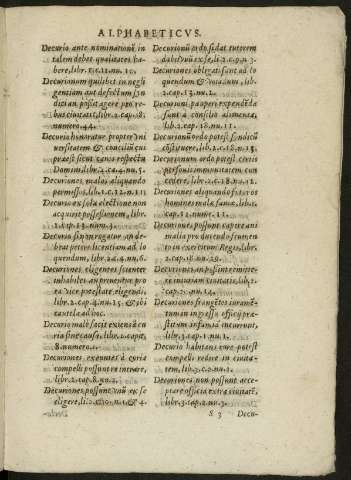 ALPHABETICVS.
Decurio ante nominationē in
talem debet qualitates ha-
bere, libr. 1. c. 11. nu. 10.
Decurionum quilibet in negli
gentiam aut defectum syn
dici an possit agere pro re-
bus ciuitatis, libr. 2. cap. 8.
numero. 44.
Decurio honoratur propter vni
uersitatem & conciliū cui
præest sicut canis respectu
Domini, libr. 2. c. 4. nu. 5.
Decuriones malos aliquando
permissos, libr. 1. c. 2. n. 11.
Decurio ex sola electione non
acquirit possessionem, libr.
1. cap. 13. num. 3.
Decurio si in rogatur an de-
beat petere licentiam ad lo
quendum, libr. 2. c. 4. nu. 6.
Decuriones eligentes scienter
inhabiles an priuentur pro
ea vice potestate eligendi,
libr. 2. cap. 4. nu. 15. & ibi
cautela ad hoc.
Decurio male facit exiens à cu
ria sine causa, libr. 2. capit.
8. numero.
Decuriones exeuntes à curia
compelli possunt reintrare,
libr. 2. cap. 8. nu. 2.
Decuriones possunt vnū ex se
eligere, li. 2. c. 10. n. 1. & 4.
Decurionū ordo si dat tutorem
dabit vnū ex se, li. 2. c. 9. n. 3.
Decuriones obligati sunt ad lo
quendum & votandum, lib.
2. cap. 13. nu. 2.
Decurioni pauperi expendēda
sunt à consilio alimenta,
lib. 2. cap. 18. nu. 11.
Decurionum ordo potest syndicū
cōstituere, lib. 2. c. 18. n. 15.
Decurionum ordo potest ciuis
priuilegium immunitatem con
cedere, lib. 2. c. 18. nu. 12.
Decuriones aliquando fuisse
homines malæ famæ, libr. 1.
cap. 12. nume. 11.
Decuriones possunt capere ani
malia pro ducendo frumen
to in exercitum Regis, libr.
2. cap. 18. nu. 29.
Decuriones an possint remitte-
re iniuriam ciuitatis, lib.
2. cap. 21. nu. 14.
Decuriones frangētes iuramē-
tum in ingressu officij præ-
stitum infamiā incurrunt,
libr. 3. cap. 1. nu. 1.
Decurio habitans rure potest
compelli redire in ciuita-
tem, lib. 3. c. 10. nu. 1.
Decuriones non possunt acce-
ptare officia extra ciuitatē,
libr. 3. cap. 2. nu. 3.
S 3 Decu-